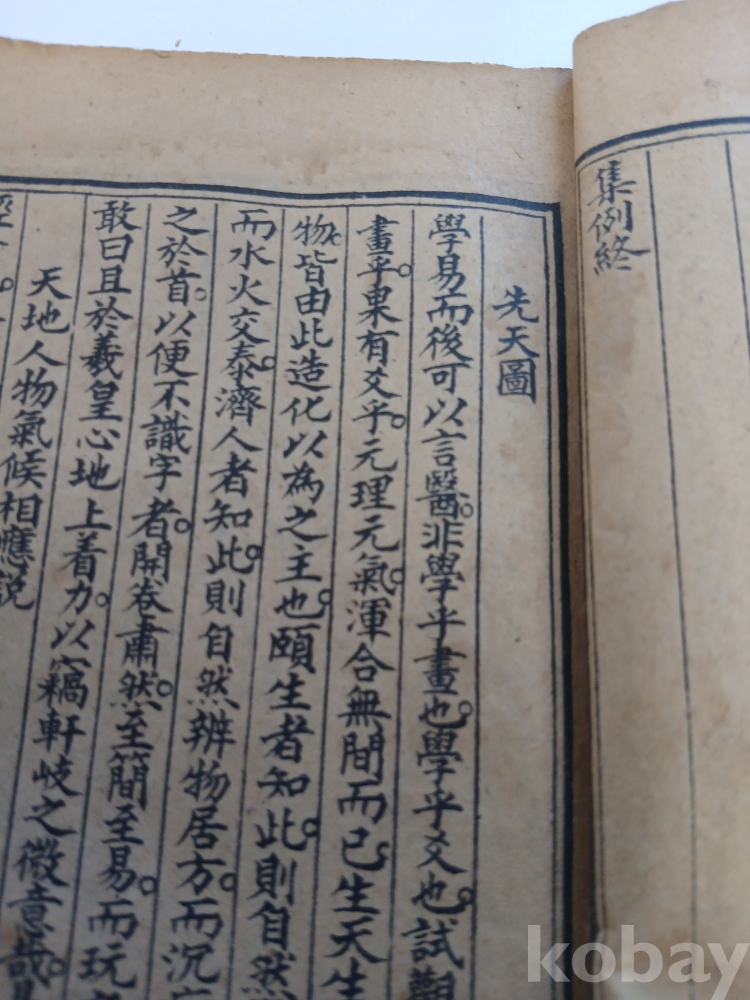 集例終
先天圖
學易而後可以言醫非學乎畫也學乎爻也試觀
畫乎果有爻乎元理元氣渾合無間而已生天生
物皆由此造化以為之主也頤生者知此則自然
而水火交泰濟人者知此則自然辨物居方而沉
之於首以便不識字者開卷肅然至簡至易而玩
敢曰且於羲皇心地上着力以竊軒岐之微意哉
天地人物氣候相應說
kobay